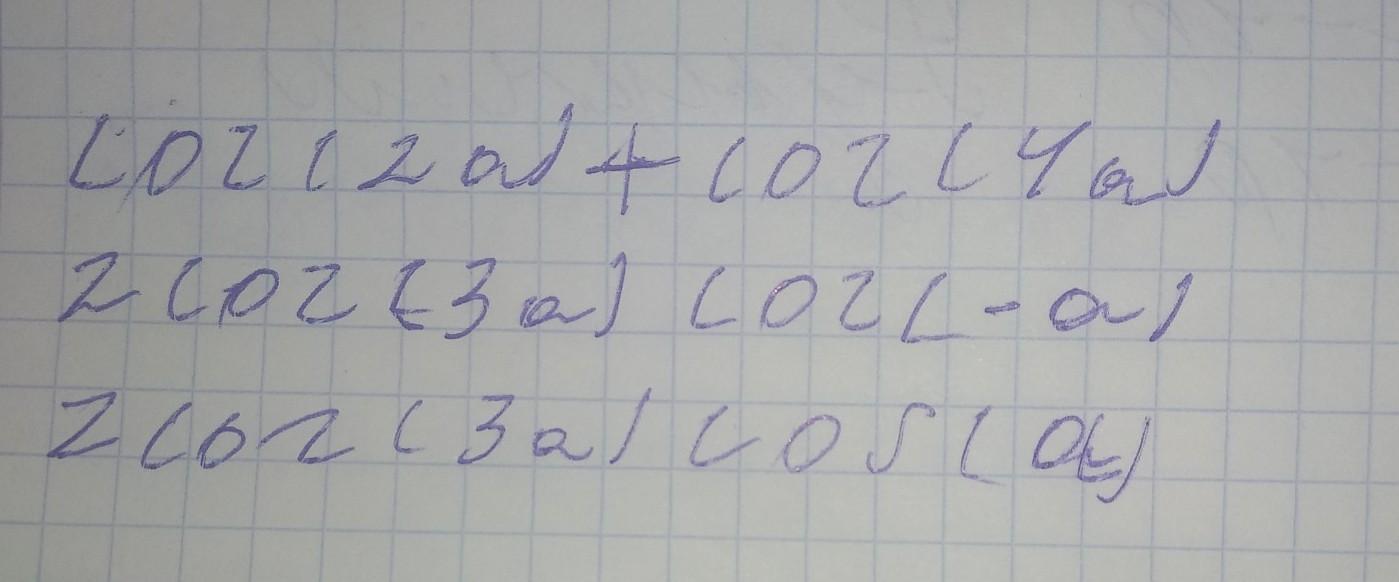 cos(2a)+cos(4a)
2cos(3a)cos(-a)
2cos(3a)cos(a)